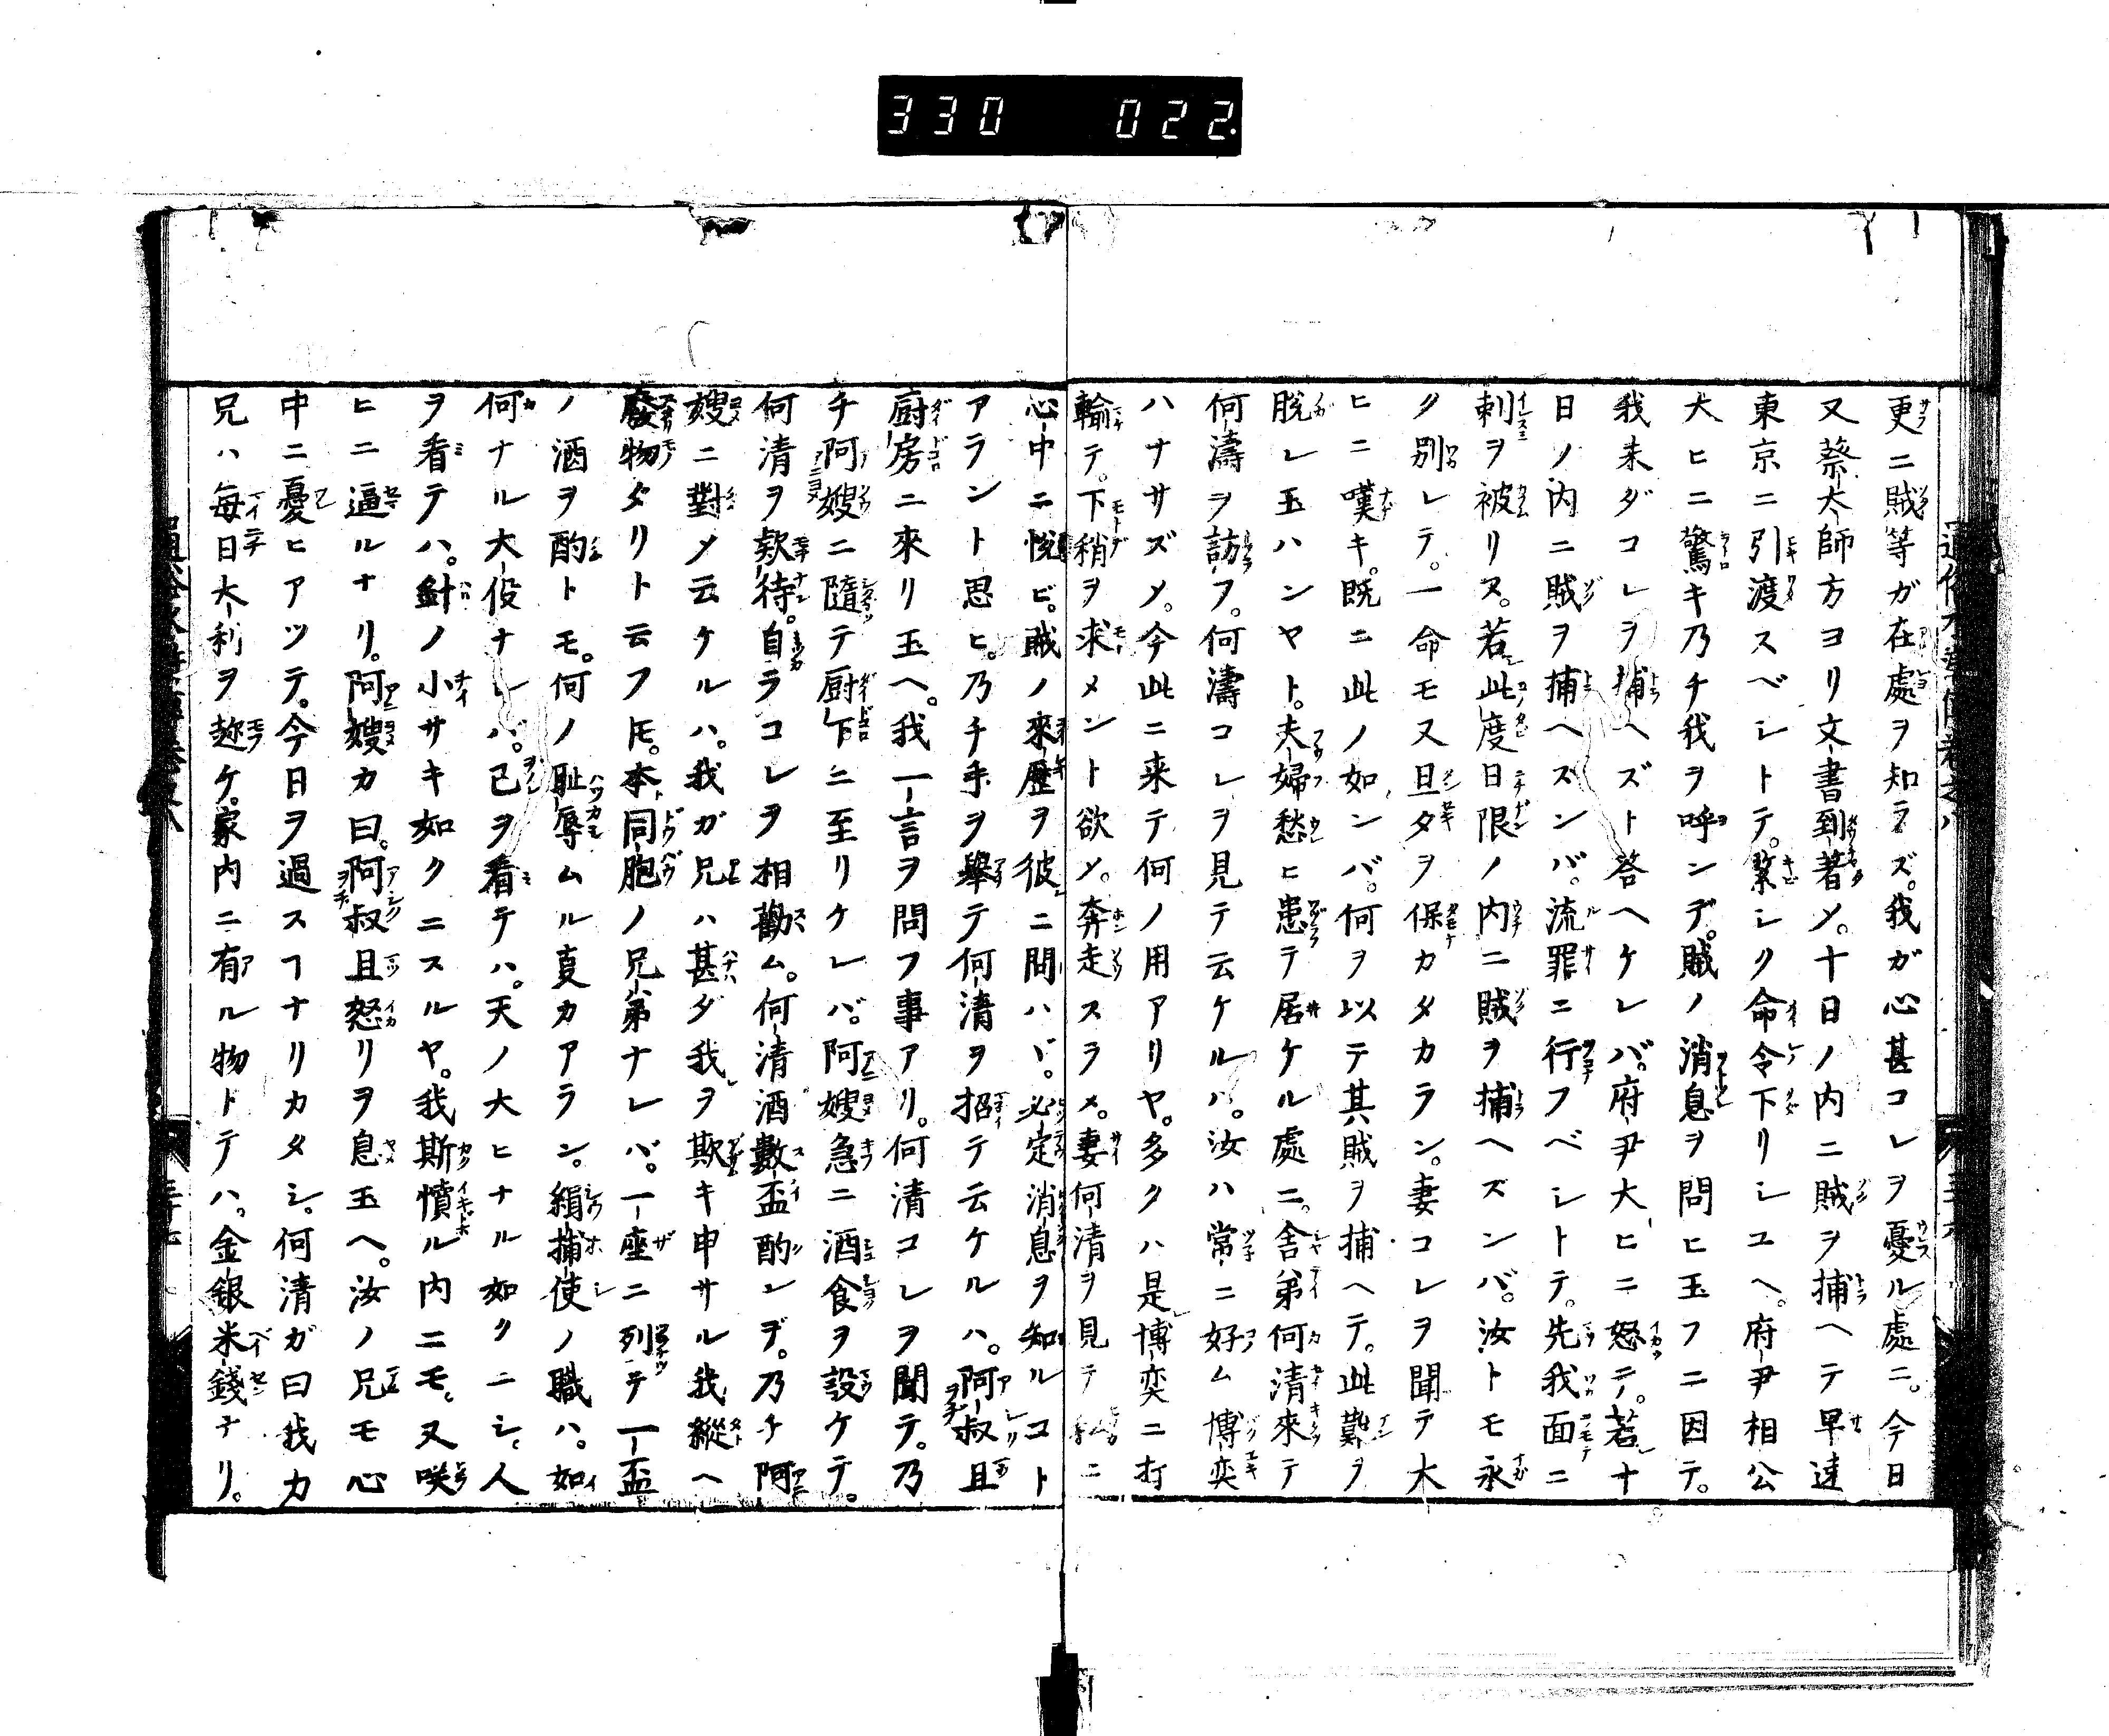 330 022.
更ニ賊等ガ在處ヲ知ラズ。我ガ心甚コレヲ憂ル處ニ。今日
又蔡太師方ヨリ文書到著乄。十日ノ内ニ賊ヲ捕ヘテ早速
東京ニ引渡スベシトテ。緊シク命令下リシユヘ。府尹相公
大ヒニ驚キ乃チ我ヲ呼ンデ。賊ノ消息ヲ問ヒ玉フニ因テ。
我未ダコレヲ捕ヘズト答ヘケレバ。府尹大ヒニ怒テ。若シ十
日ノ内ニ賊ヲ捕ヘズンバ。流罪ニ行フベシトテ。先我面ニ
刺ヲ被リヌ。若此度日限ノ内ニ賊ヲ捕ヘズンバ。汝トモ永
ク別レテ。一命モ又旦夕ヲ保カタカラン。妻コレヲ聞テ大
ヒニ嘆キ。既ニ此ノ如ンバ。何ヲ以テ其賊ヲ捕ヘテ。此難ヲ
脱レ玉ハンヤト。夫婦愁ヒ患テ居ケル處ニ。舎弟何清來テ
何濤ヲ訪フ。何濤コレヲ見テ云ケルハ。汝ハ常ニ好ム博奕
ハナサズ乄。今此ニ来テ何ノ用アリヤ。多クハ是博奕ニ打
輸テ。下稍ヲ求メント欲乄。奔走スラメ。妻何清ヲ見テ私ニ
心中ニ悦ビ。賊ノ來歷ヲ彼ニ問ハヾ。必定消息ヲ知ルコト
アラント思ヒ。乃チ手ヲ舉テ何清ヲ招テ云ケルハ。阿叔且
厨房ニ來リ玉ヘ。我一言ヲ問フ事アリ。何清コレヲ聞テ。乃
チ阿嫂ニ隨テ厨下ニ至リケレバ。阿嫂急ニ酒食ヲ設ケテ。
何清ヲ欵待。自ラコレヲ相勸ム。何清酒數盃酌ンデ。乃チ阿
嫂ニ對乄云ケルハ。我ガ兄ハ甚ダ我ヲ欺キ申サル我縱ヘ
廢物タリト云フ𪜈。本同胞ノ兄弟ナレバ。一座ニ列テ一盃
ノ酒ヲ酌トモ。何ノ耻辱ムル㕝カアラン。緝捕使ノ職ハ。如
何ナル大役ナレバ。己ヲ看テハ。天ノ大ヒナル如クニシ、人
ヲ看テハ。針ノ小サキ如クニスルヤ。我斯憤ル内ニモ。又咲
ヒニ逼ルナリ。阿嫂カ曰。阿叔且怒リヲ息玉ヘ。汝ノ兄モ心
中ニ憂ヒアツテ。今日ヲ過スヿナリカタシ。何清ガ曰我カ
兄ハ毎日大利ヲ趂ケ。家内ニ有ル物トテハ。金銀米錢ナリ。